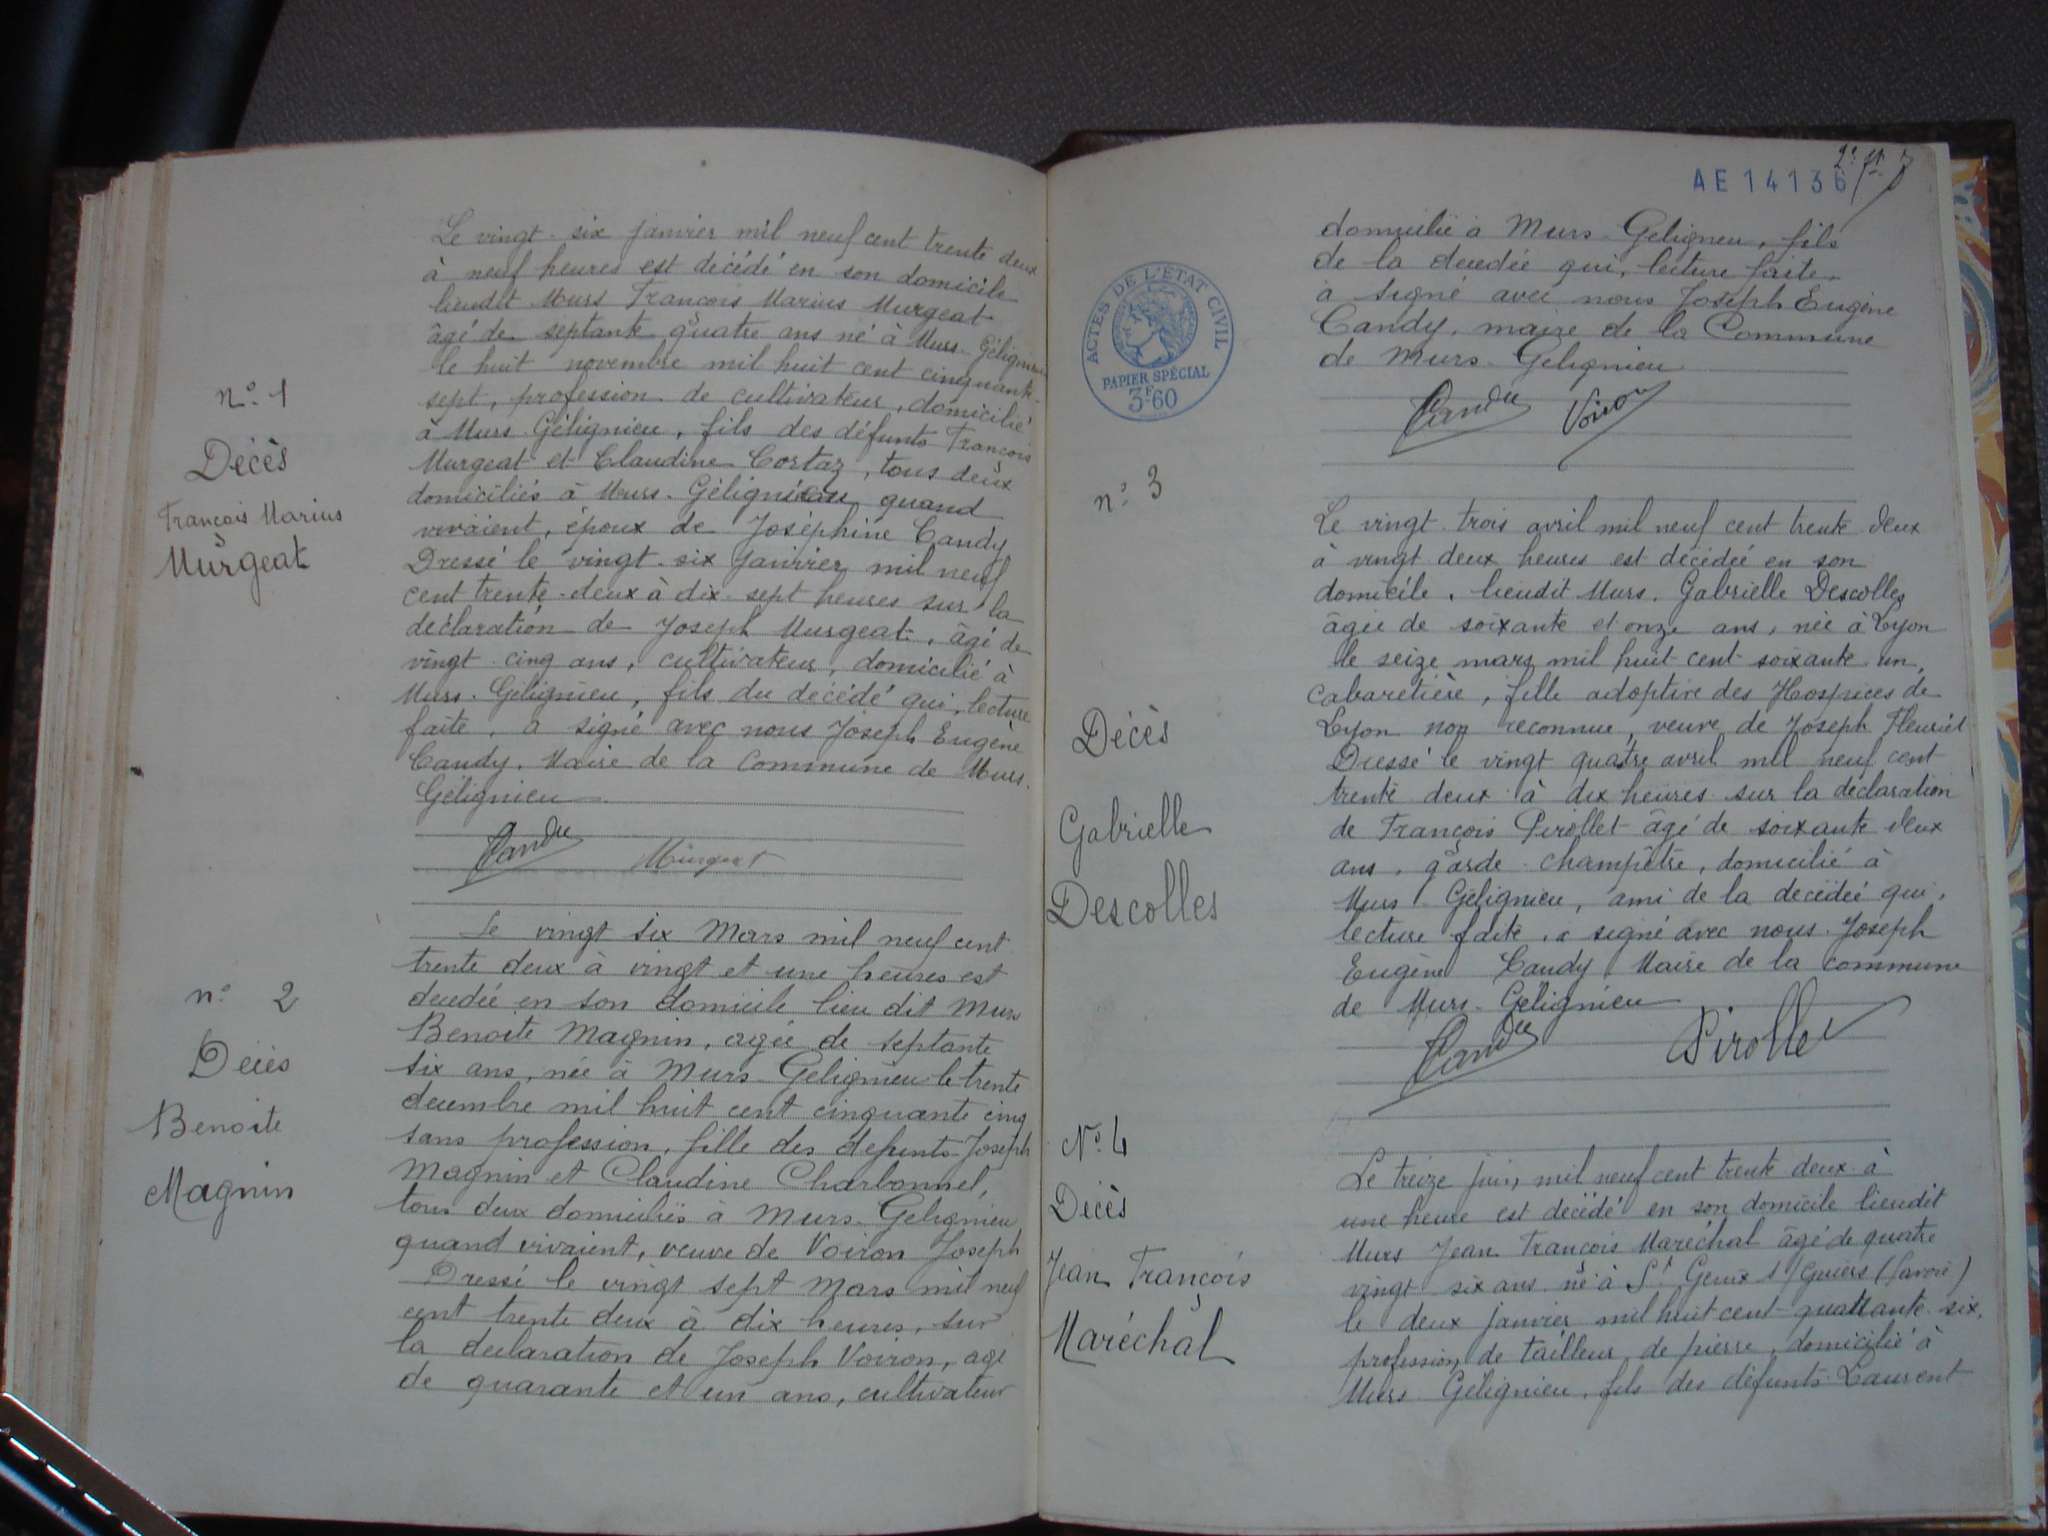 n° 1
Décès
François Marius
Murgeat
Le vingt-six janvier mil neuf cent trente deux
à neuf heures est décédé en son domicile
lieudit Murs François Marius Murgeat
âgé de septante quatre ans né à Murs-Gélignieu
le huit novembre mil huit cent cinquante-
sept, profession de cultivateur, domicilié
à Murs-Gélignieu, fils des défunts François
Murgeat et Claudine Cortaz, tous deux
domiciliés à Murs-Gélignieu quand
vivaient, époux de Joséphine Candy
Dressé le vingt-six janvier mil neuf
cent trente-deux à dix-sept heures sur la
déclaration de Joseph Murgeat, âgé de
vingt-cinq ans, cultivateur, domicilié à
Murs-Gélignieu, fils du décédé qui, lecture
faite, a signé avec nous Joseph Eugène
Candy, Maire de la Commune de Murs-
Gélignieu
Murgeat
n° 2
Décès
Benoite
Magnin
Le vingt six Mars mil neuf cent
trente deux à vingt et une heures est
decedée en son domicile lieu dit Murs
Benoite Magnin, agée de septante
six ans, née à Murs-Gelignieu le trente
decembre mil huit cent cinquante cinq
sans profession, fille des defunts Joseph
Magnin et Claudine Charbonnel,
tous deux domiciliés à Murs-Gelignieu
quand vivaient, veuve de Voiron Joseph
Dressé le vingt sept Mars mil neuf
cent trente deux à dix heures, sur
la declaration de Joseph Voiron, agé
de quarante et un ans, cultivateur
AE14136
ACTES DE L'ÉTAT CIVIL
PAPIER SPÉCIAL
3F60
domicilié à Murs-Geligneu, fils
de la decedée qui, lecture faite,
a signé avec nous Joseph Eugène
Candy, maire de la Commune
de Murs-Gelignieu
Voiron
n° 3
Décès
Gabrielle
Descolles
Le vingt-trois avril mil neuf cent trente-deux
à vingt-deux heures est décédée en son
domicile, lieudit Murs, Gabrielle Descolles
âgée de soixante et onze ans, née à Lyon
le seize mars mil huit cent soixante un,
cabaretière, fille adoptive des Hospices de
Lyon non reconnue, veuve de Joseph Fleuriet
Dressé le vingt quatre avril mil neuf cent
trente deux à dix heures sur la déclaration
de François Pirollet âgé de soixante deux
ans, garde-champêtre, domicilié à
Murs Gélignieu, ami de la décédée qui,
lecture faite, a signé avec nous Joseph
Eugène Candy Maire de la commune
de Murs-Gélignieu
Pirollet
N° 4
Décès
Jean François
Maréchal
Le treize juin mil neuf cent trente-deux à
une heure est décédé en son domicile lieudit
Murs Jean François Maréchal âgé de quatre
vingt six ans né à St Genix s/Guiers (Savoie)
le deux janvier mil huit cent quarante-six,
profession de tailleur de pierre, domicilié à
Murs Gélignieu, fils des défunts Laurent